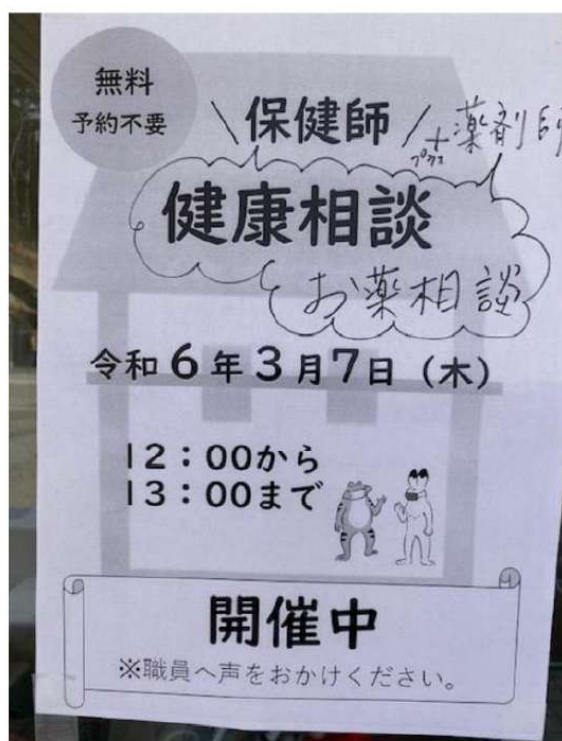 無料
予約不要
\保健師/ +薬剤師
プラス
健康相談
お薬相談
令和6年3月7日(木)
12:00から
13:00まで
開催中
※職員へ声をおかけください。